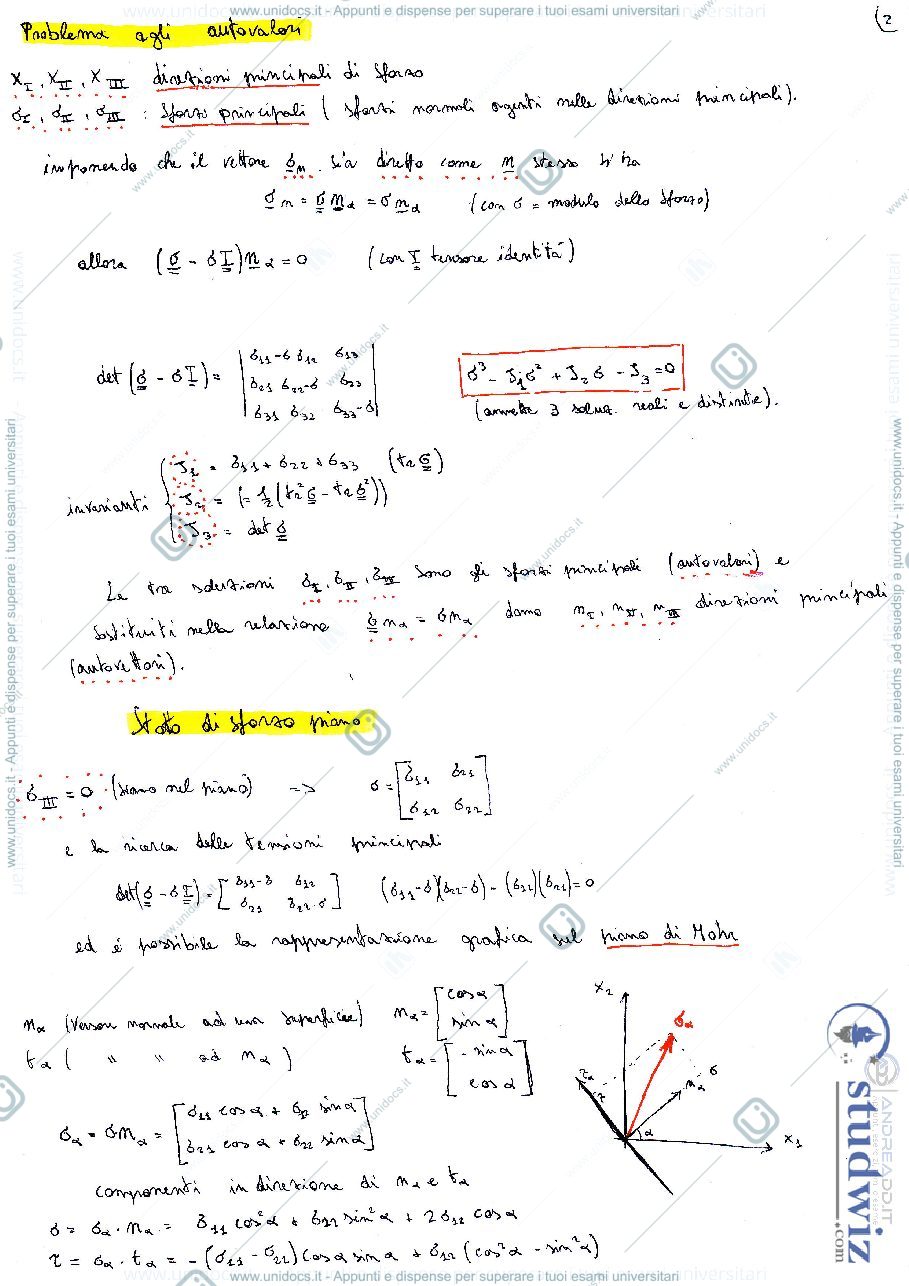 www.unidocs.it - Appunti e dispense per superare i tuoi esami universitari
(2
Problema agli autovalori
X_I, X_II, X_III direzioni principali di sforzo
σ_I, σ_II, σ_III : sforzi principali ( sforzi normali agenti nelle direzioni principali).
imponendo che il vettore σ_n sia diretto come n stesso si ha
σ_n = σ n_α = σ n_α (con σ = modulo dello sforzo)
allora (σ - σI) n_α = 0 (con I tensore identità)
det (σ - σI) = | σ11-σ σ12 σ13
σ21 σ22-σ σ23
σ31 σ32 σ33-σ |
σ³ - J1σ² + J2σ - J3 = 0
(ammette 3 soluz. reali e distinte).
invarianti { J1 = σ11 + σ22 + σ33 (tr σ)
J2 = (= 1/2 (tr²σ - tr σ²))
J3 = det σ
Le tre soluzioni σ_I, σ_II, σ_III sono gli sforzi principali (autovalori) e
sostituiti nella relazione σ n_α = σ n_α danno n_I, n_II, n_III direzioni principali
(autovettori).
Stato di sforzo piano
σ_III = 0 (siamo nel piano) => σ = [ σ11 σ21
σ12 σ22 ]
e la ricerca delle tensioni principali
det(σ - σI) = [ σ11-σ σ12
σ21 σ22-σ ] (σ11-σ)(σ22-σ) - (σ12)(σ21) = 0
ed é possibile la rappresentazione grafica sul piano di Mohr
n_α (Versore normale ad una superficie) n_α = [ cos α
sin α ]
t_α ( " " ad n_α ) t_α = [ - sin α
cos α ]
σ_α = σ n_α = [ σ11 cos α + σ12 sin α
σ21 cos α + σ22 sin α ]
componenti in direzione di n_α e t_α
σ = σ_α · n_α = σ11 cos²α + σ22 sin²α + 2σ12 cos α
τ = σ_α · t_α = - (σ11 - σ22) cos α sin α + σ12 (cos²α - sin²α)
X2
σ_α
τ_α
τ
σ
n_α
α
X1
studwiz
.com
ANDREADD.IT
www.unidocs.it - Appunti e dispense per superare i tuoi esami universitari